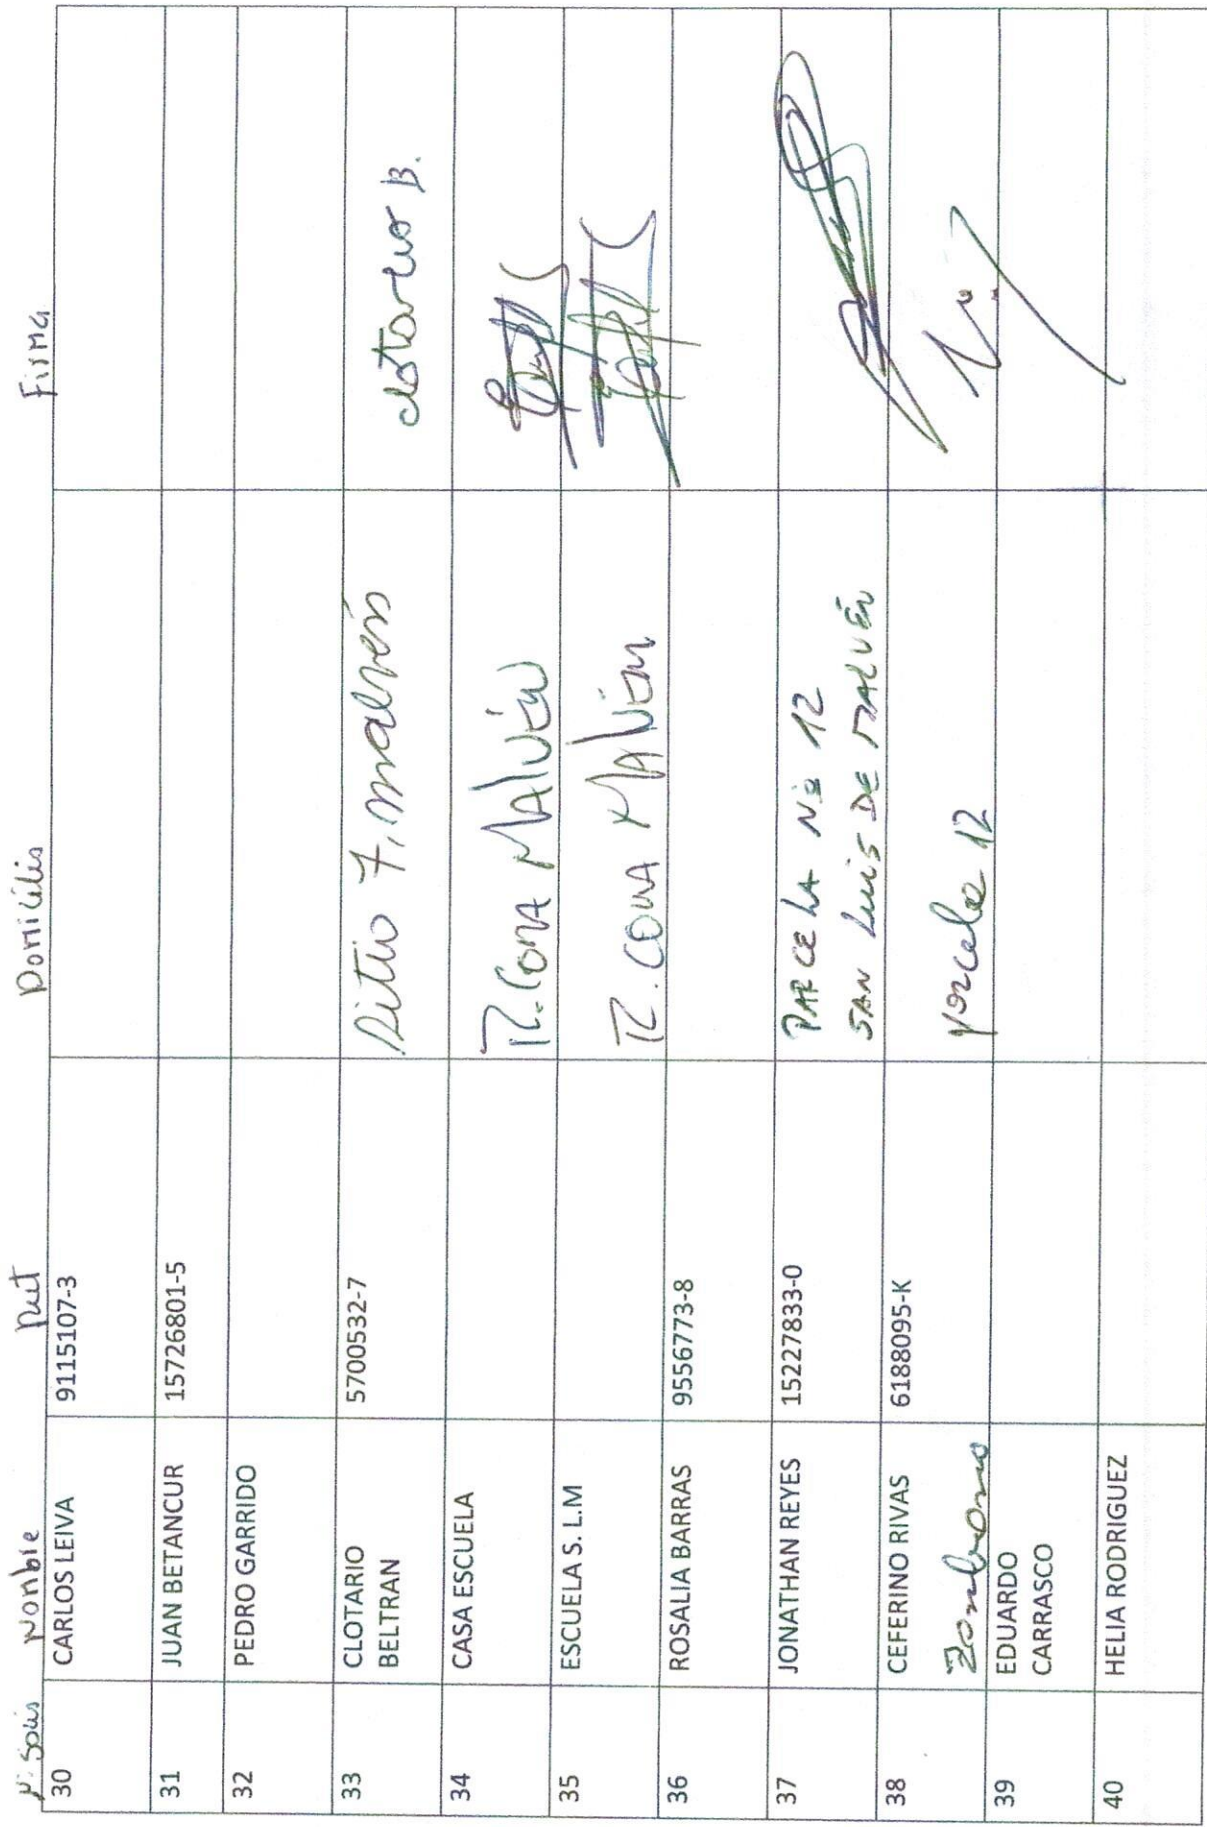 N. Socio Nombre Rut Domicilio Firma
30 CARLOS LEIVA 9115107-3
31 JUAN BETANCUR 15726801-5
32 PEDRO GARRIDO
33 CLOTARIO BELTRAN 5700532-7 Sitio 7, malvén clotario B.
34 CASA ESCUELA R. COMA MALVÉN
35 ESCUELA S. L.M R. COMA MALVÉN
36 ROSALIA BARRAS 9556773-8
37 JONATHAN REYES 15227833-0 PARCELA Nº 12
SAN LUIS DE MALVÉN
38 CEFERINO RIVAS 6188095-K parcela 12
Zambrano
39 EDUARDO
CARRASCO
40 HELIA RODRIGUEZ